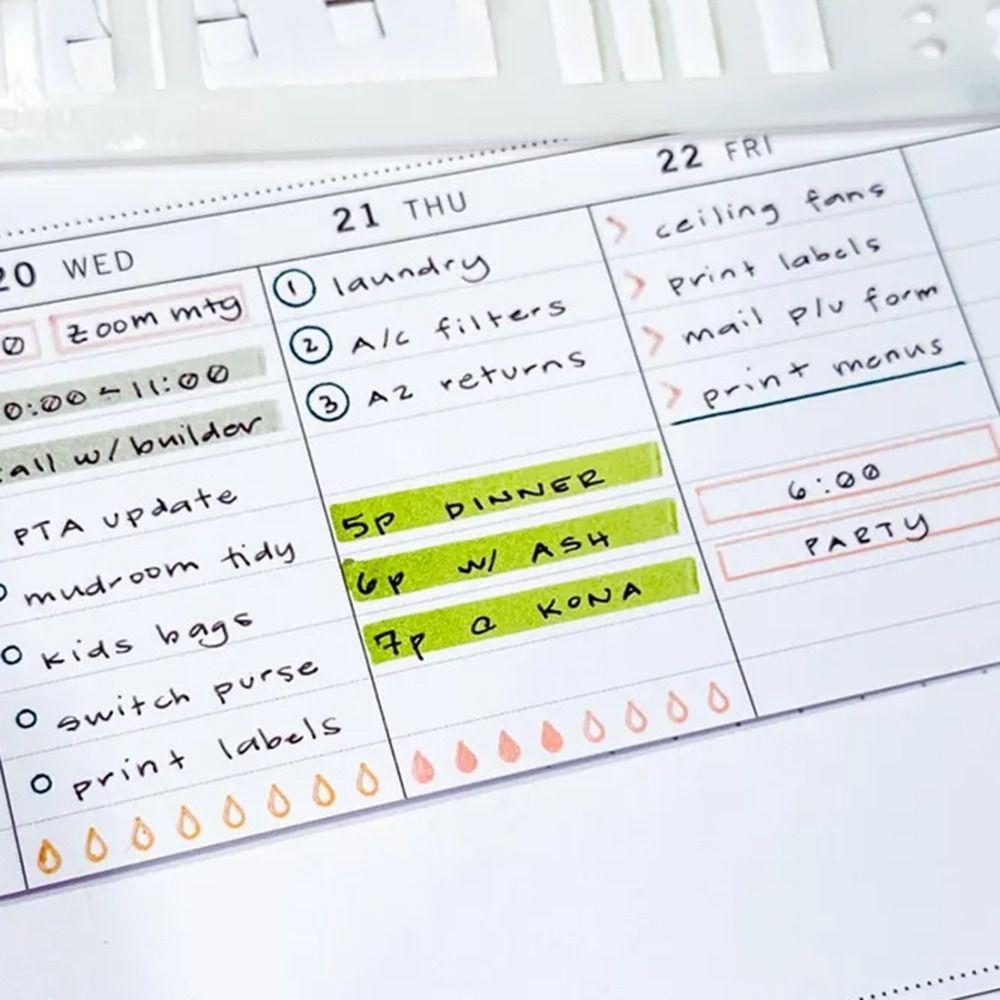 20 WED
zoom mtg
0:00 - 11:00
all w/ builder
PTA update
mudroom tidy
kids bags
switch purse
print labels
21 THU
1 laundry
2 A/C filters
3 AZ returns
5p DINNER
6p w/ ASH
7p @ KONA
22 FRI
ceiling fans
print labels
mail p/u form
print menus
6:00
PARTY